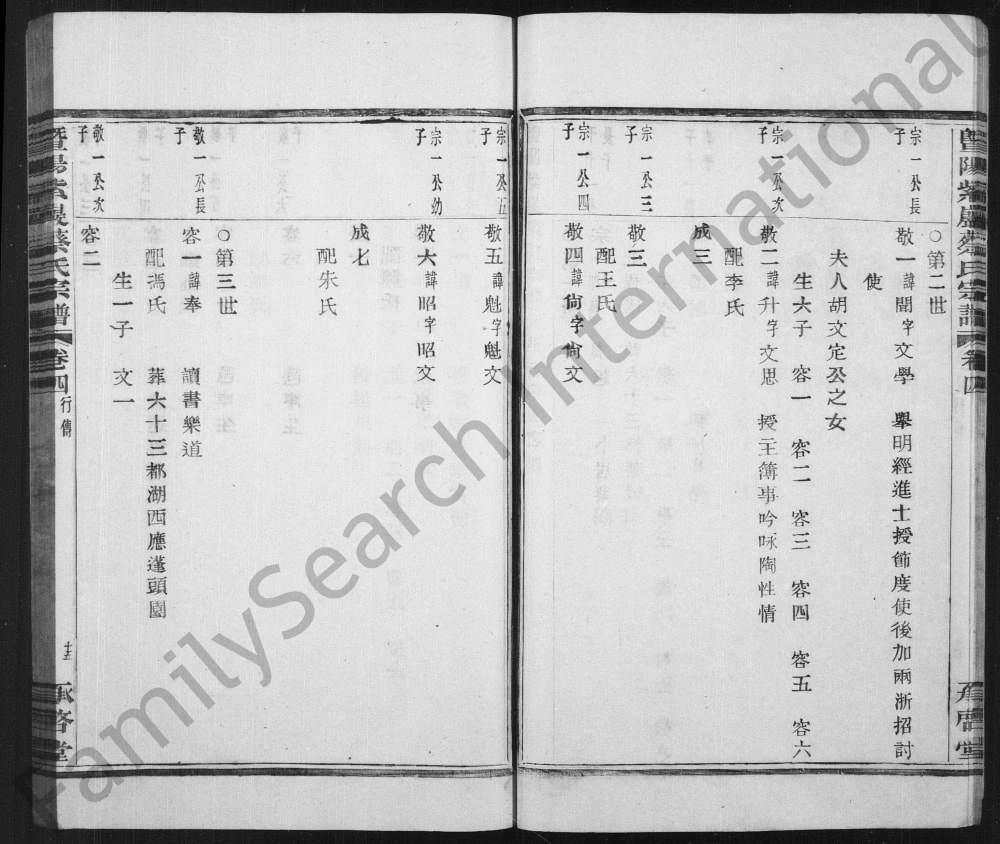 暨陽紫𡶶蔡氏宗譜 卷四
承啓堂
○第二世
宗一公長子
敬一 諱聞字文學 舉明經進士授節度使後加兩浙招討
使
夫人胡文定公之女
宗一公次子
敬二 諱升字文思 授主簿事吟咏陶性情
生六子 容一 容二 容三 容四 容五 容六
配李氏
成三
宗一公三子
敬三
配王氏
宗一公四子
敬四 諱尙字尙文
宗一公五子
敬五 諱魁字魁文
宗一公幼子
敬六 諱昭字昭文
成七
配朱氏
○第三世
敬一公長子
容一 諱奉 讀書樂道
配馮氏 葬六十三都湖西應蓬頭園
生一子 文一
敬一公次子
容二
蔡氏宗譜 卷四 行傳
承啓堂
FamilySearch International